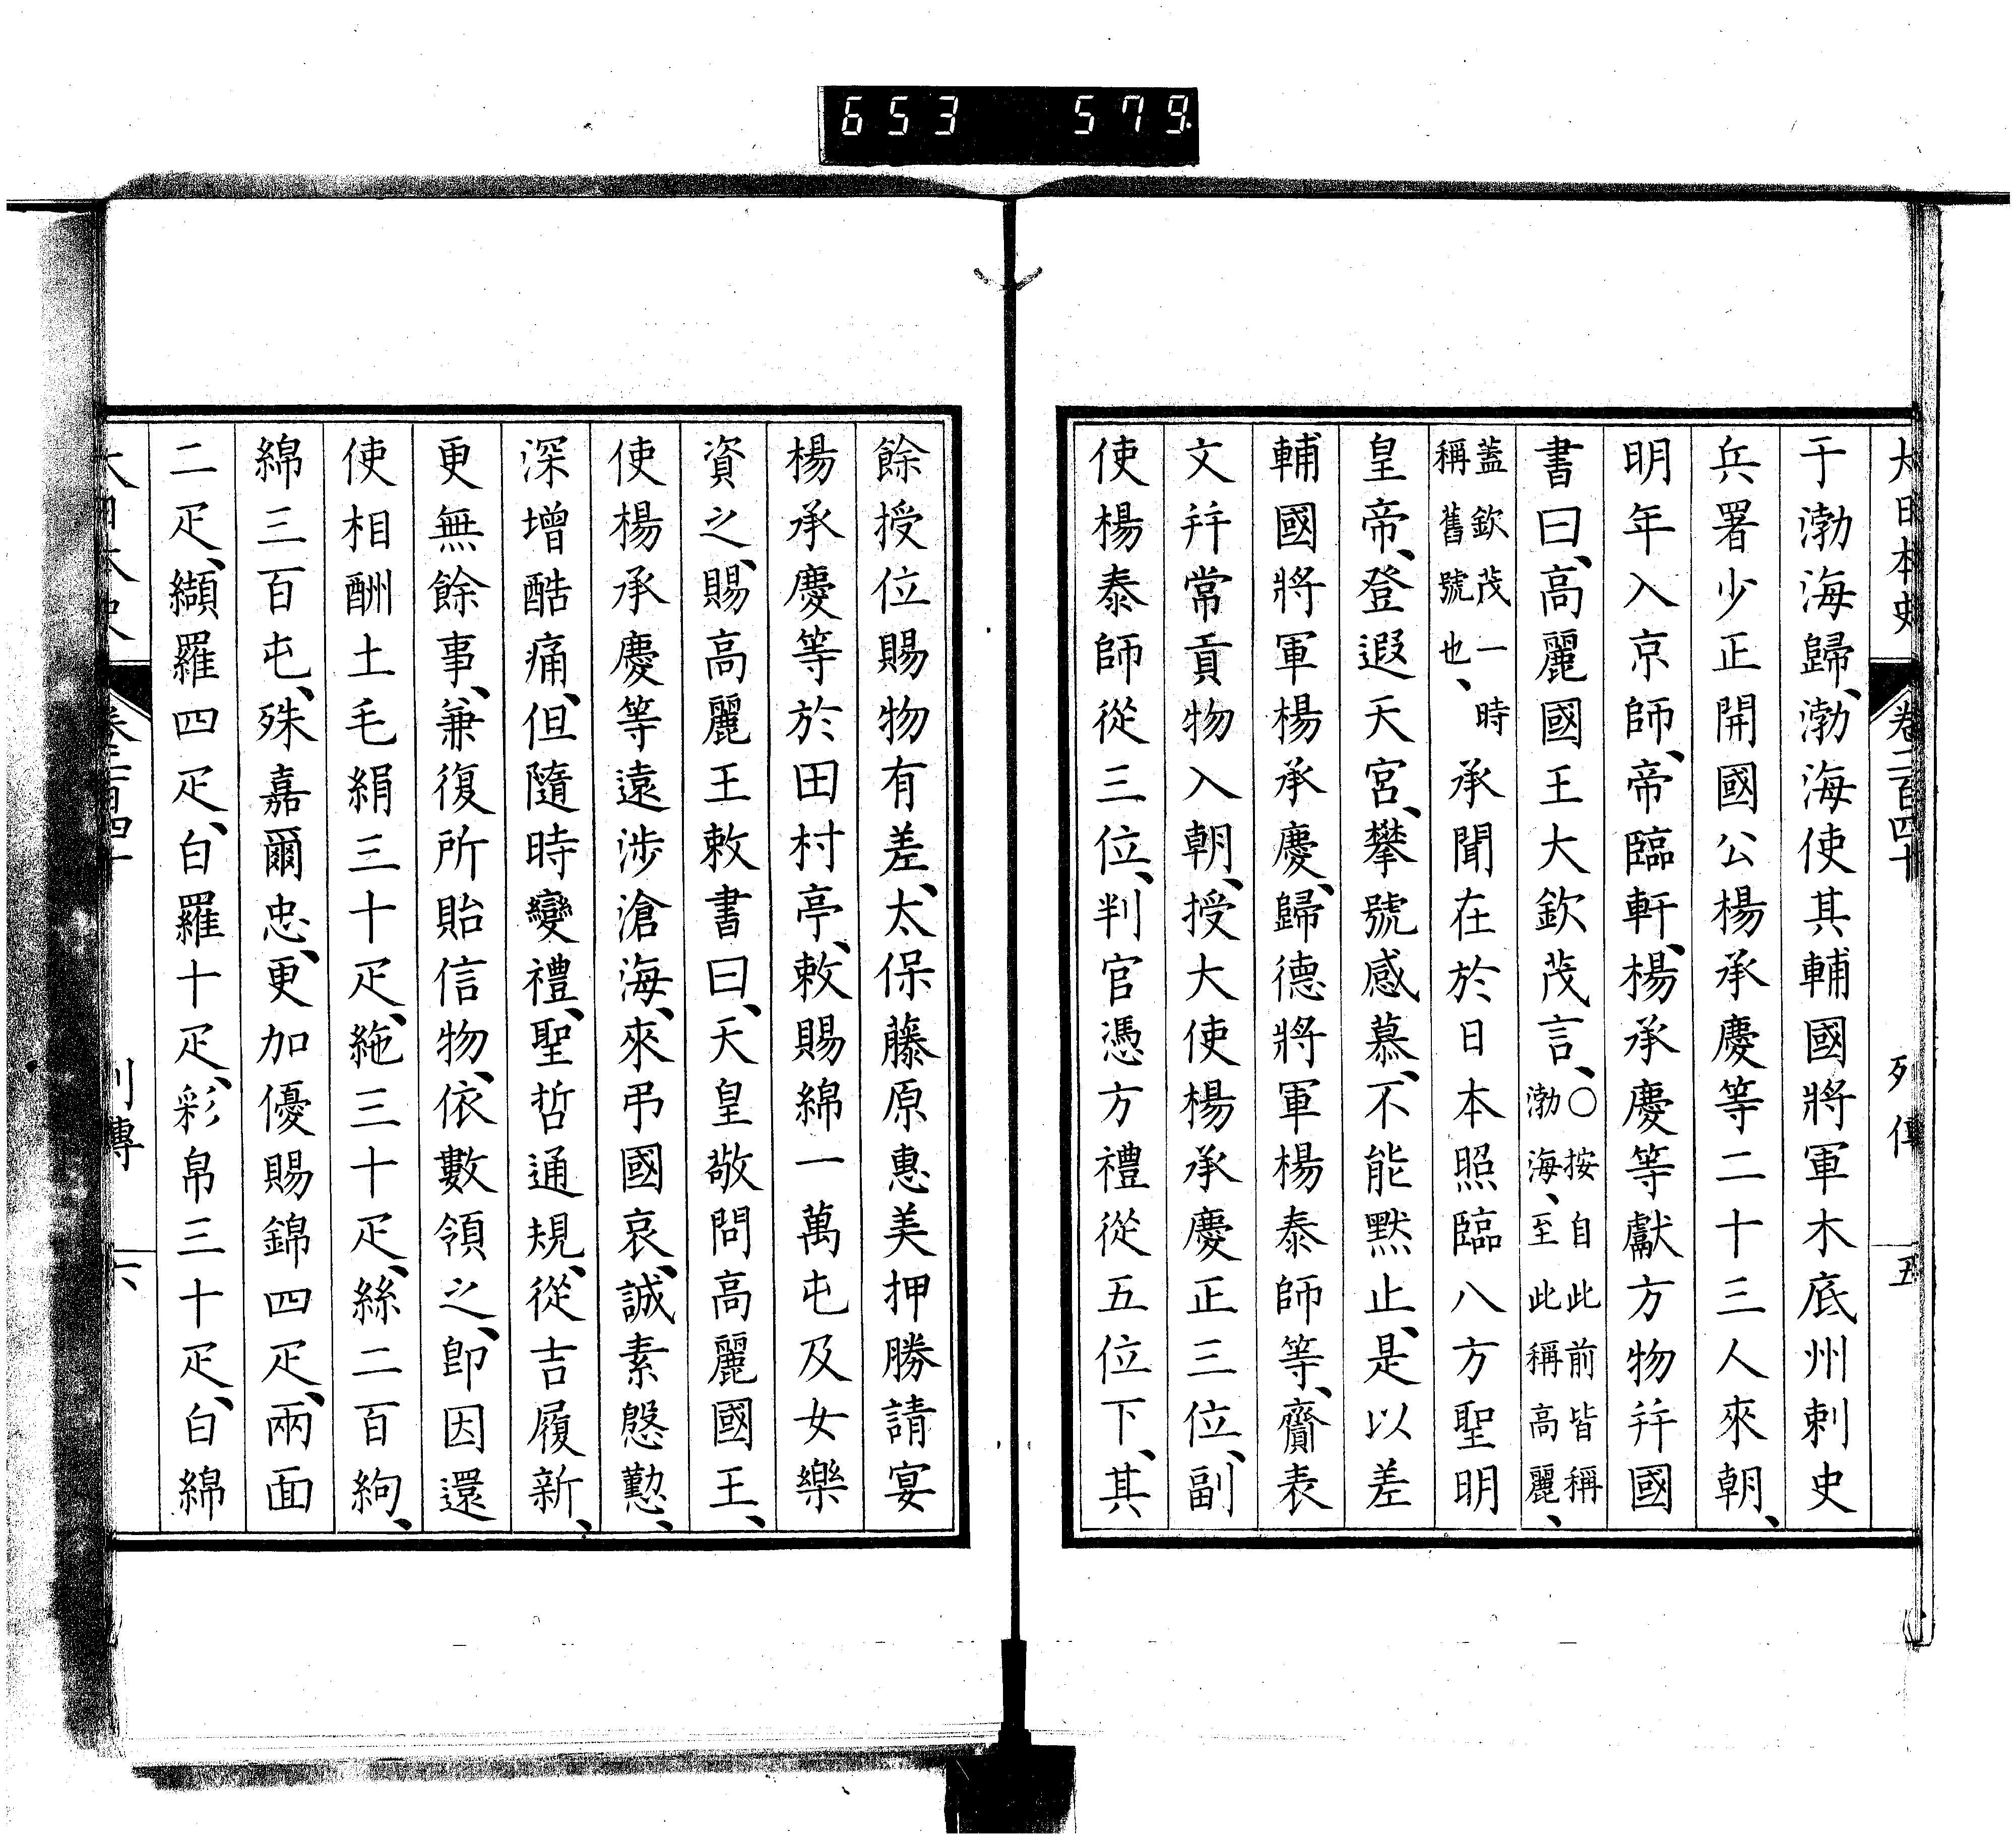 653 579
大日本史 卷二百四十 列傳 五
于渤海歸、渤海使其輔國將軍木底州刺史
兵署少正開國公楊承慶等二十三人來朝、
明年入京師、帝臨軒、楊承慶等獻方物幷國
書曰、高麗國王大欽茂言、○按自此前皆稱渤海、至此稱高麗、
蓋欽茂一時稱舊號也、承聞在於日本照臨八方聖明
皇帝、登遐天宮、攀號感慕、不能默止、是以差
輔國將軍楊承慶、歸德將軍楊泰師等、齎表
文幷常貢物入朝、授大使楊承慶正三位、副
使楊泰師從三位、判官憑方禮從五位下、其
餘授位賜物有差、太保藤原惠美押勝請宴
楊承慶等於田村亭、敕賜綿一萬屯及女樂
資之、賜高麗王敕書曰、天皇敬問高麗國王、
使楊承慶等遠涉滄海、來弔國哀、誠素慇懃、
深增酷痛、但隨時變禮、聖哲通規、從吉履新、
更無餘事、兼復所貽信物、依數領之、卽因還
使相酬土毛絹三十疋、絁三十疋、絲二百絇、
綿三百屯、殊嘉爾忠、更加優賜錦四疋、兩面
二疋、纈羅四疋、白羅十疋、彩帛三十疋、白綿
大日本史 卷二百四十 列傳 六